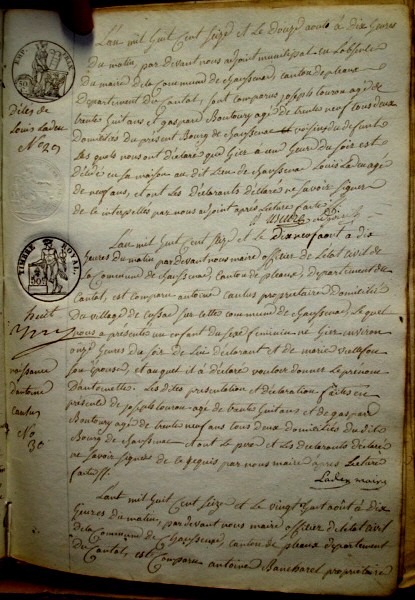 L'an mil huit Cent Seize et le douze aout à dix heures
du matin, par devant nous adjoint municipal en l'absence
du maire de la Commune de chaussenac, canton de pleaux
departement du Cantal, sont comparus joseph lourou agé de
trente huit ans et gaspard Boutoury agé de trente neuf ans tous deux
domiciliés du present Bourg de chaussenac voisins du defunt
Lesquels nous ont déclaré que hier à un heure du soir est
décédé en sa maison au dit lieu de chaussenac Louis Ladeu agé
de neuf ans, et ont Les déclarants declaré ne savoir signer
de ce interpellés par nous adjoint après Lecture faite
décès de
Louis Ladeu
No 29
L'an mil huit Cent Seize et le dix neuf aout à dix
heures du matin par devant nous maire officier de l'etat civil de
la Commune de chaussenac, Canton de pleaux, departement du
Cantal, est comparu antoine cantus proprietaire domicilié
du village de sur cette commune de chaussenac, Lequel
nous a présenté un enfant du sexe feminin né hier environ
onze heures du soir de Lui déclarant et de marie
son epouse, et auquel il a déclaré vouloir donner Le prénom
d'antoinette. Les dites presentation et declaration faites en
présence de joseph lourou agé de trente huit ans et de gaspard
Boutoury agé de trente neuf ans tous deux domiciliés du dit
Bourg de chaussenac et ont Le pere et Les déclarants déclaré
ne savoir signer de ce requis par nous maire après Lecture
faite
Ladeu maire
TIMBRE ROYAL
naissance
d'antoine
cantus
No
30
L'an mil huit Cent Seize et le vingt aout à dix
heures du matin, par devant nous maire officier de l'etat civil
de la Commune de Chaussenac, canton de pleaux departement
du Cantal, est Comparu antoine Bancharel proprietaire